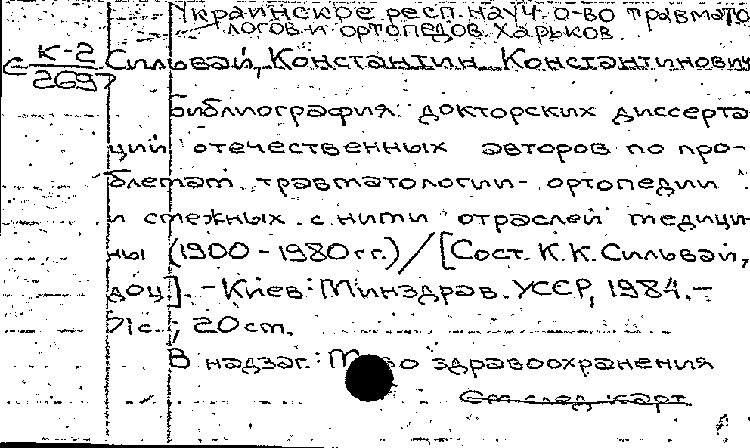 Украинское респ. науч. о-во травмато
логов и ортопедов. Харьков.
С К-2
2697
Сильвай, Константин Константинович
Библиография докторских диссерта
ций отечественных авторов по про-
блемам травматологии- ортопедии
и смежных с ними отраслей медици
ны (1900-1980 гг.) / [Сост. К.К. Сильвай,
доц]. - Киев: Минздрав. УССР, 1984.-
71 с.; 20 см.
В надзаг.: М во здравоохранения
См след карт